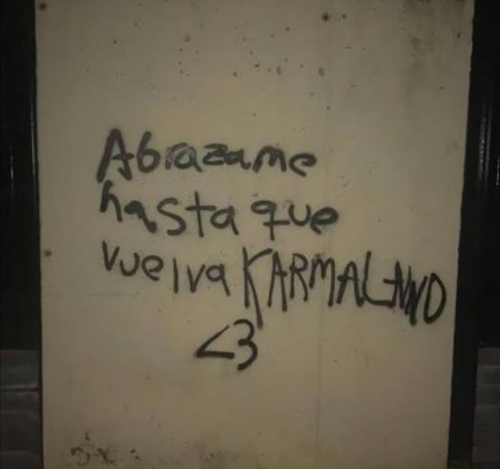 Abrazame
hasta que
vuelva KARMALAND
<3